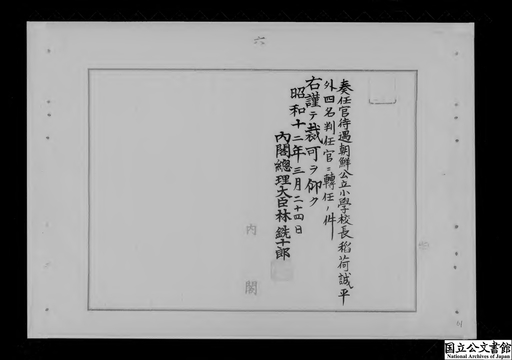 六
奏任官待遇朝鮮公立小學校長稻荷誠平
外四名判任官ニ轉任ノ件
右謹テ裁可ヲ仰ク
昭和十二年三月二十四日
內閣總理大臣林銑十郎
內閣
国立公文書館
National Archives of Japan